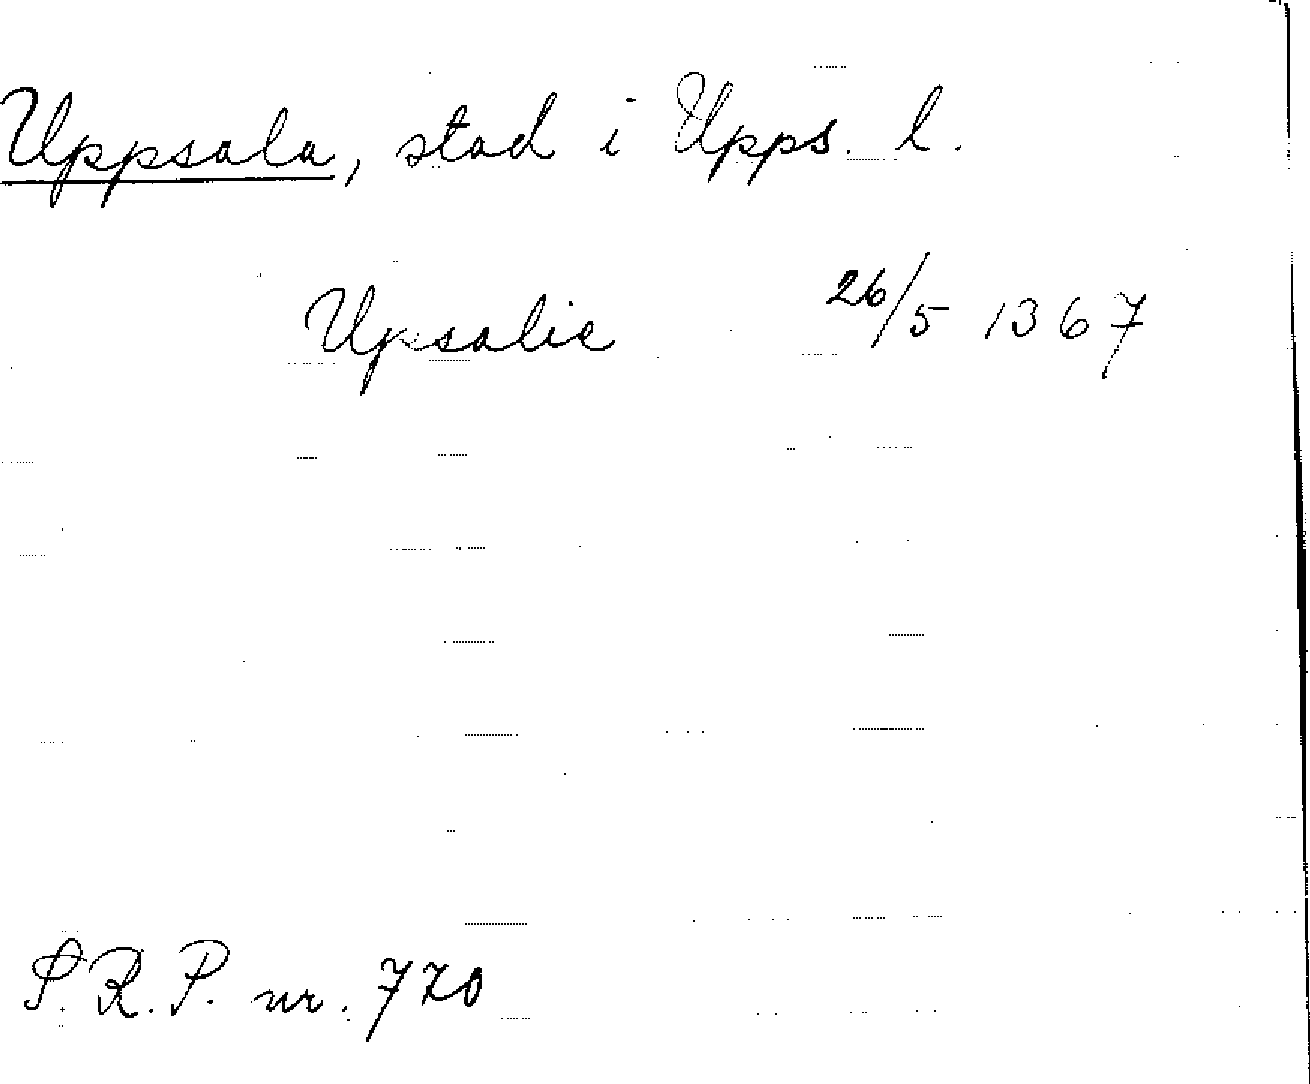 Uppsala, stad i Upps. l.
Upsalie 26/5 1367
S.R.P. nr. 770